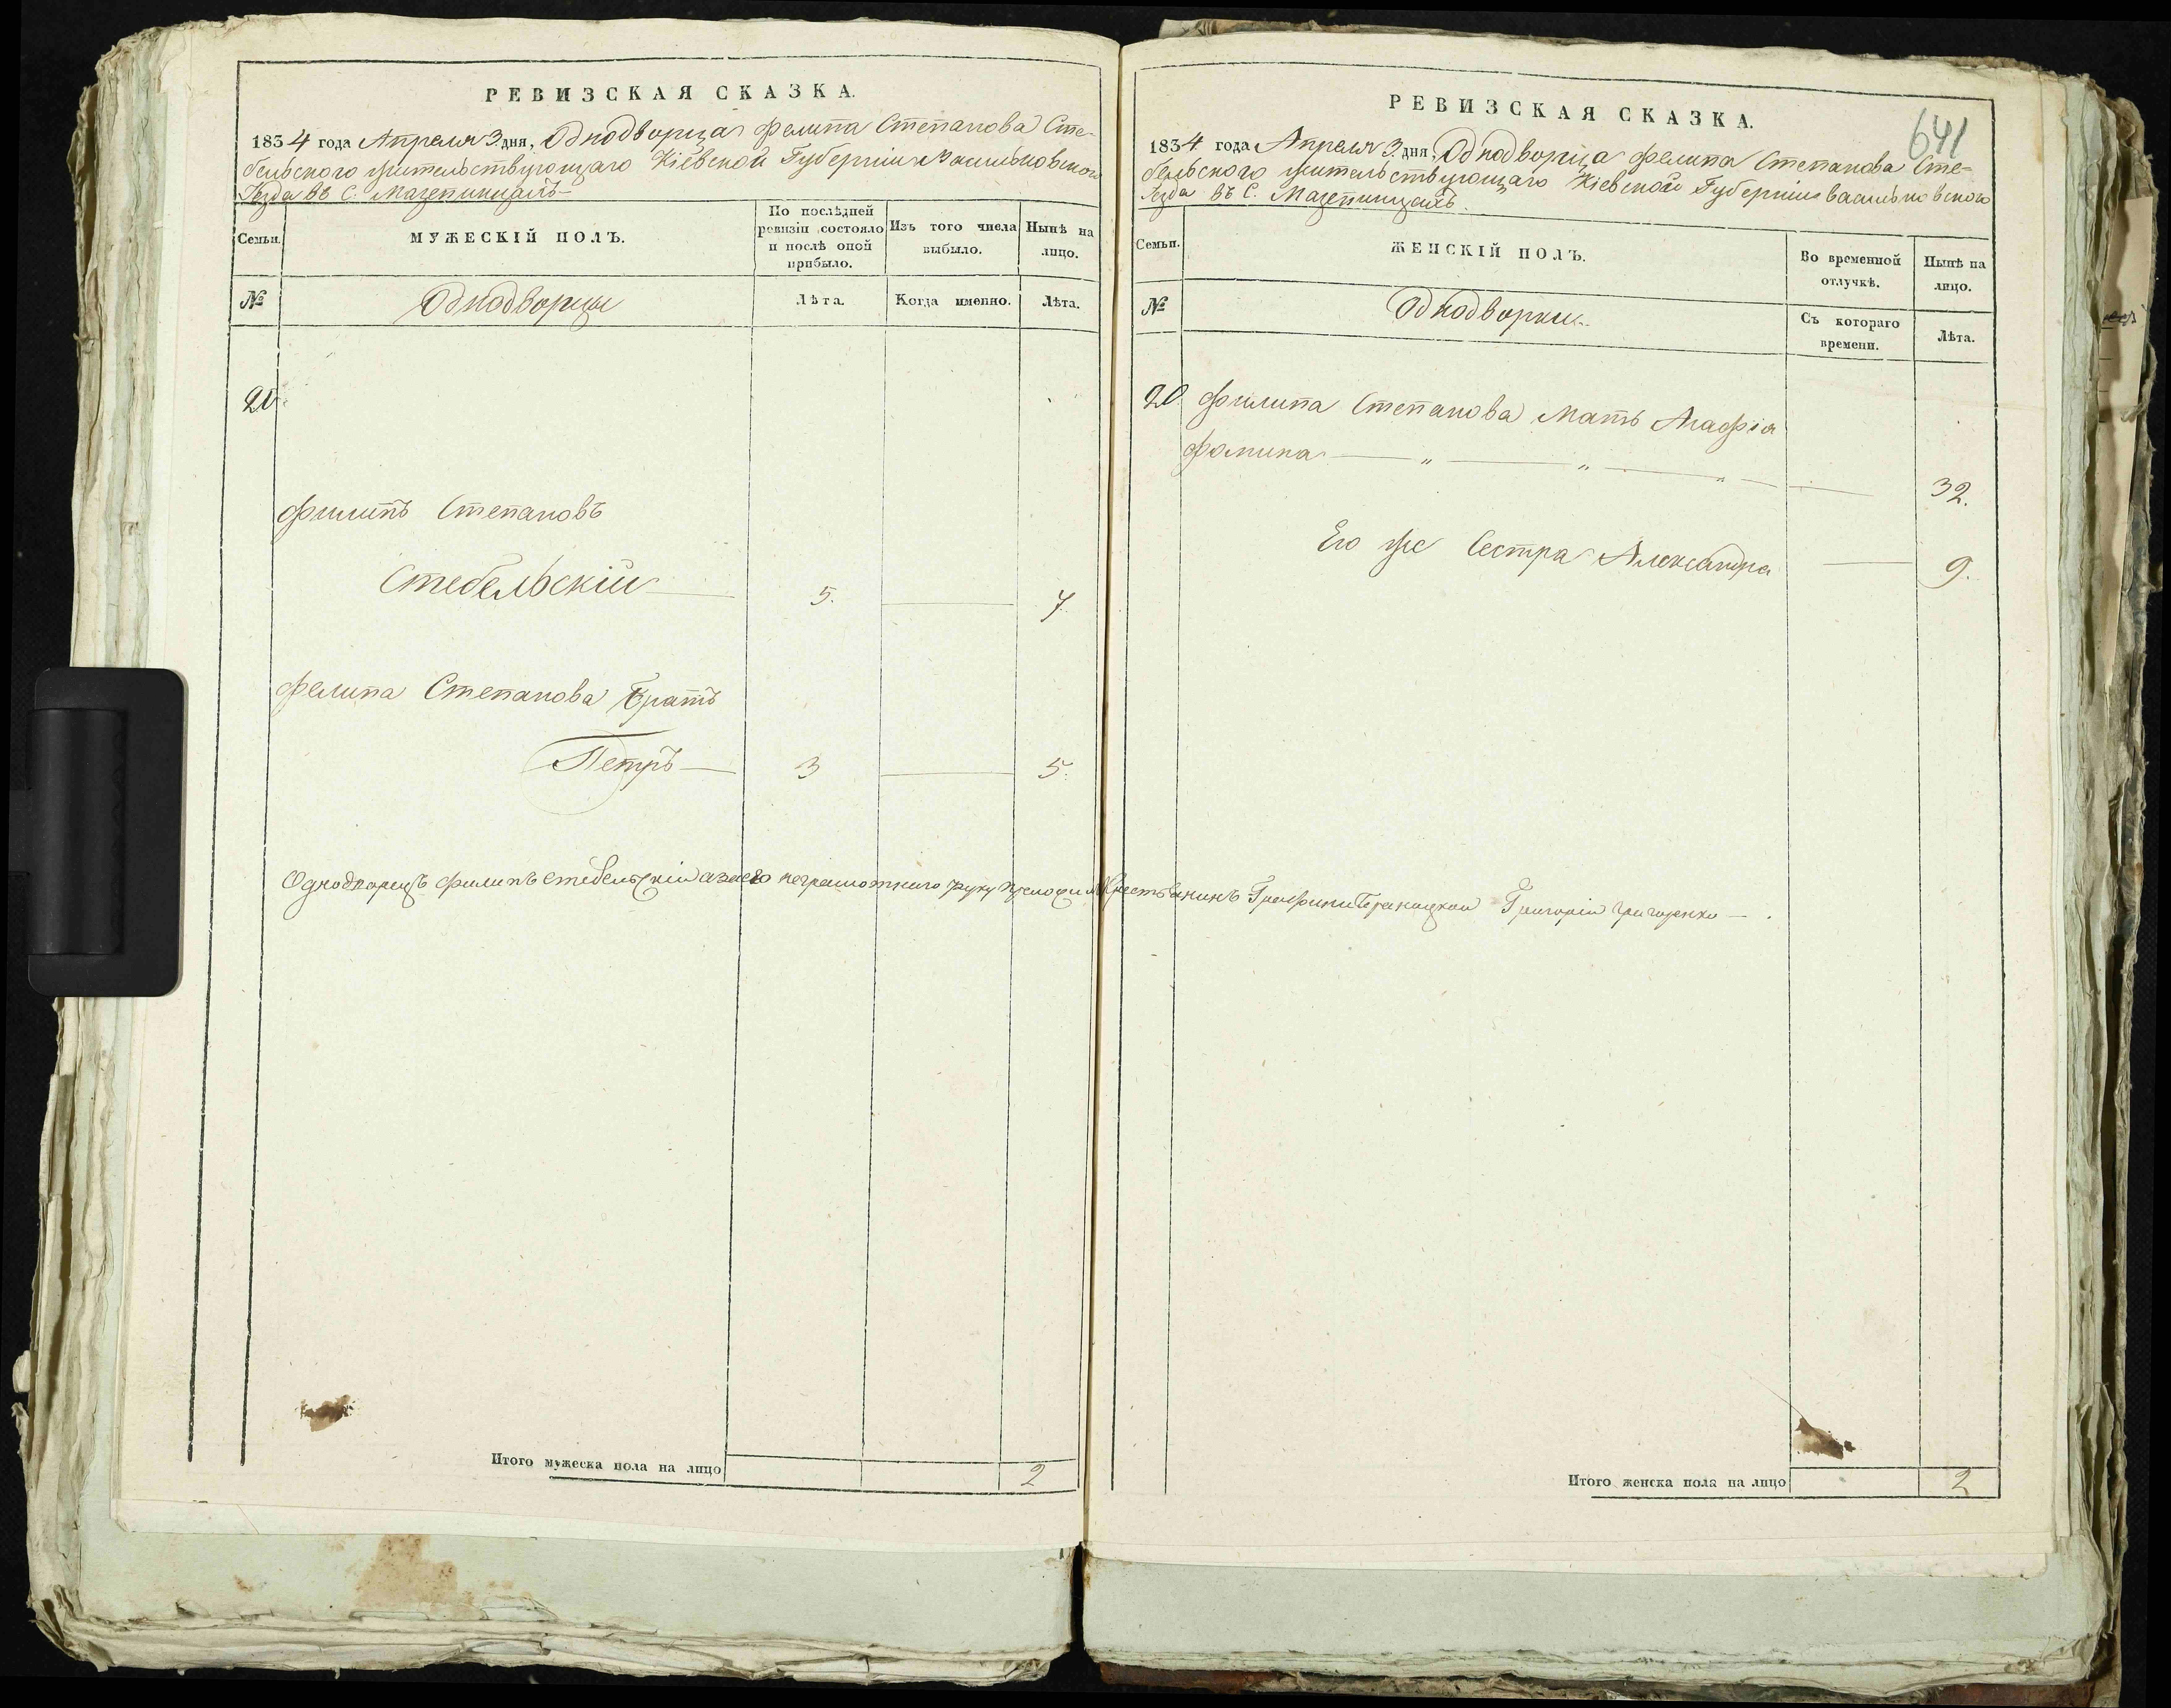 РЕВИЗСКАЯ СКАЗКА.
1834 года Апреля 3. дня, Однодворца Фелипа Степанова Сте-
бельского жительствующаго Кіевской Губерніи Васильковского
Уезда въ С. Мазепинцахъ
Семьи.
МУЖЕСКІЙ ПОЛЪ.
По послѣдней
ревизіи состояло
и послѣ оной
прибыло.
Изъ того числа
выбыло.
Нынѣ на
лицо.
№
Однодворцы
Лѣта.
Когда именно.
Лѣта.
20
Филипъ Степановъ
Стебельскій 5. 7.
Фелипа Степанова Братъ
Петръ 3 5.
Однодворецъ Филипъ Стебельскій а за его неграмотного руку приложил Крестьянинъ Графини Браницкой Григорій Григоренко
Итого мужеска пола на лицо 2
641
РЕВИЗСКАЯ СКАЗКА.
1834 года Апреля 3. дня, Однодворца Фелипа Степанова Сте-
бельского жительствующаго Кіевской Губерніи Васильковского
Уезда въ С. Мазепинцахъ.
Семьи.
ЖЕНСКІЙ ПОЛЪ.
Во временной
отлучкѣ.
Нынѣ на
лицо.
№
Однодворки
Съ котораго
времени.
Лѣта.
20. Филипа Степанова Мать Агафія
Фомина 32.
Его же Сестра Александра 9.
Итого женска пола на лицо 2